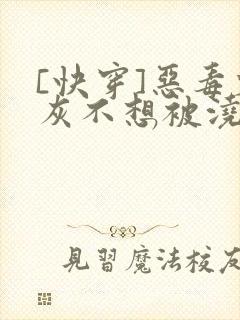 [快穿]惡毒
灰不想被澆
見習魔法校友